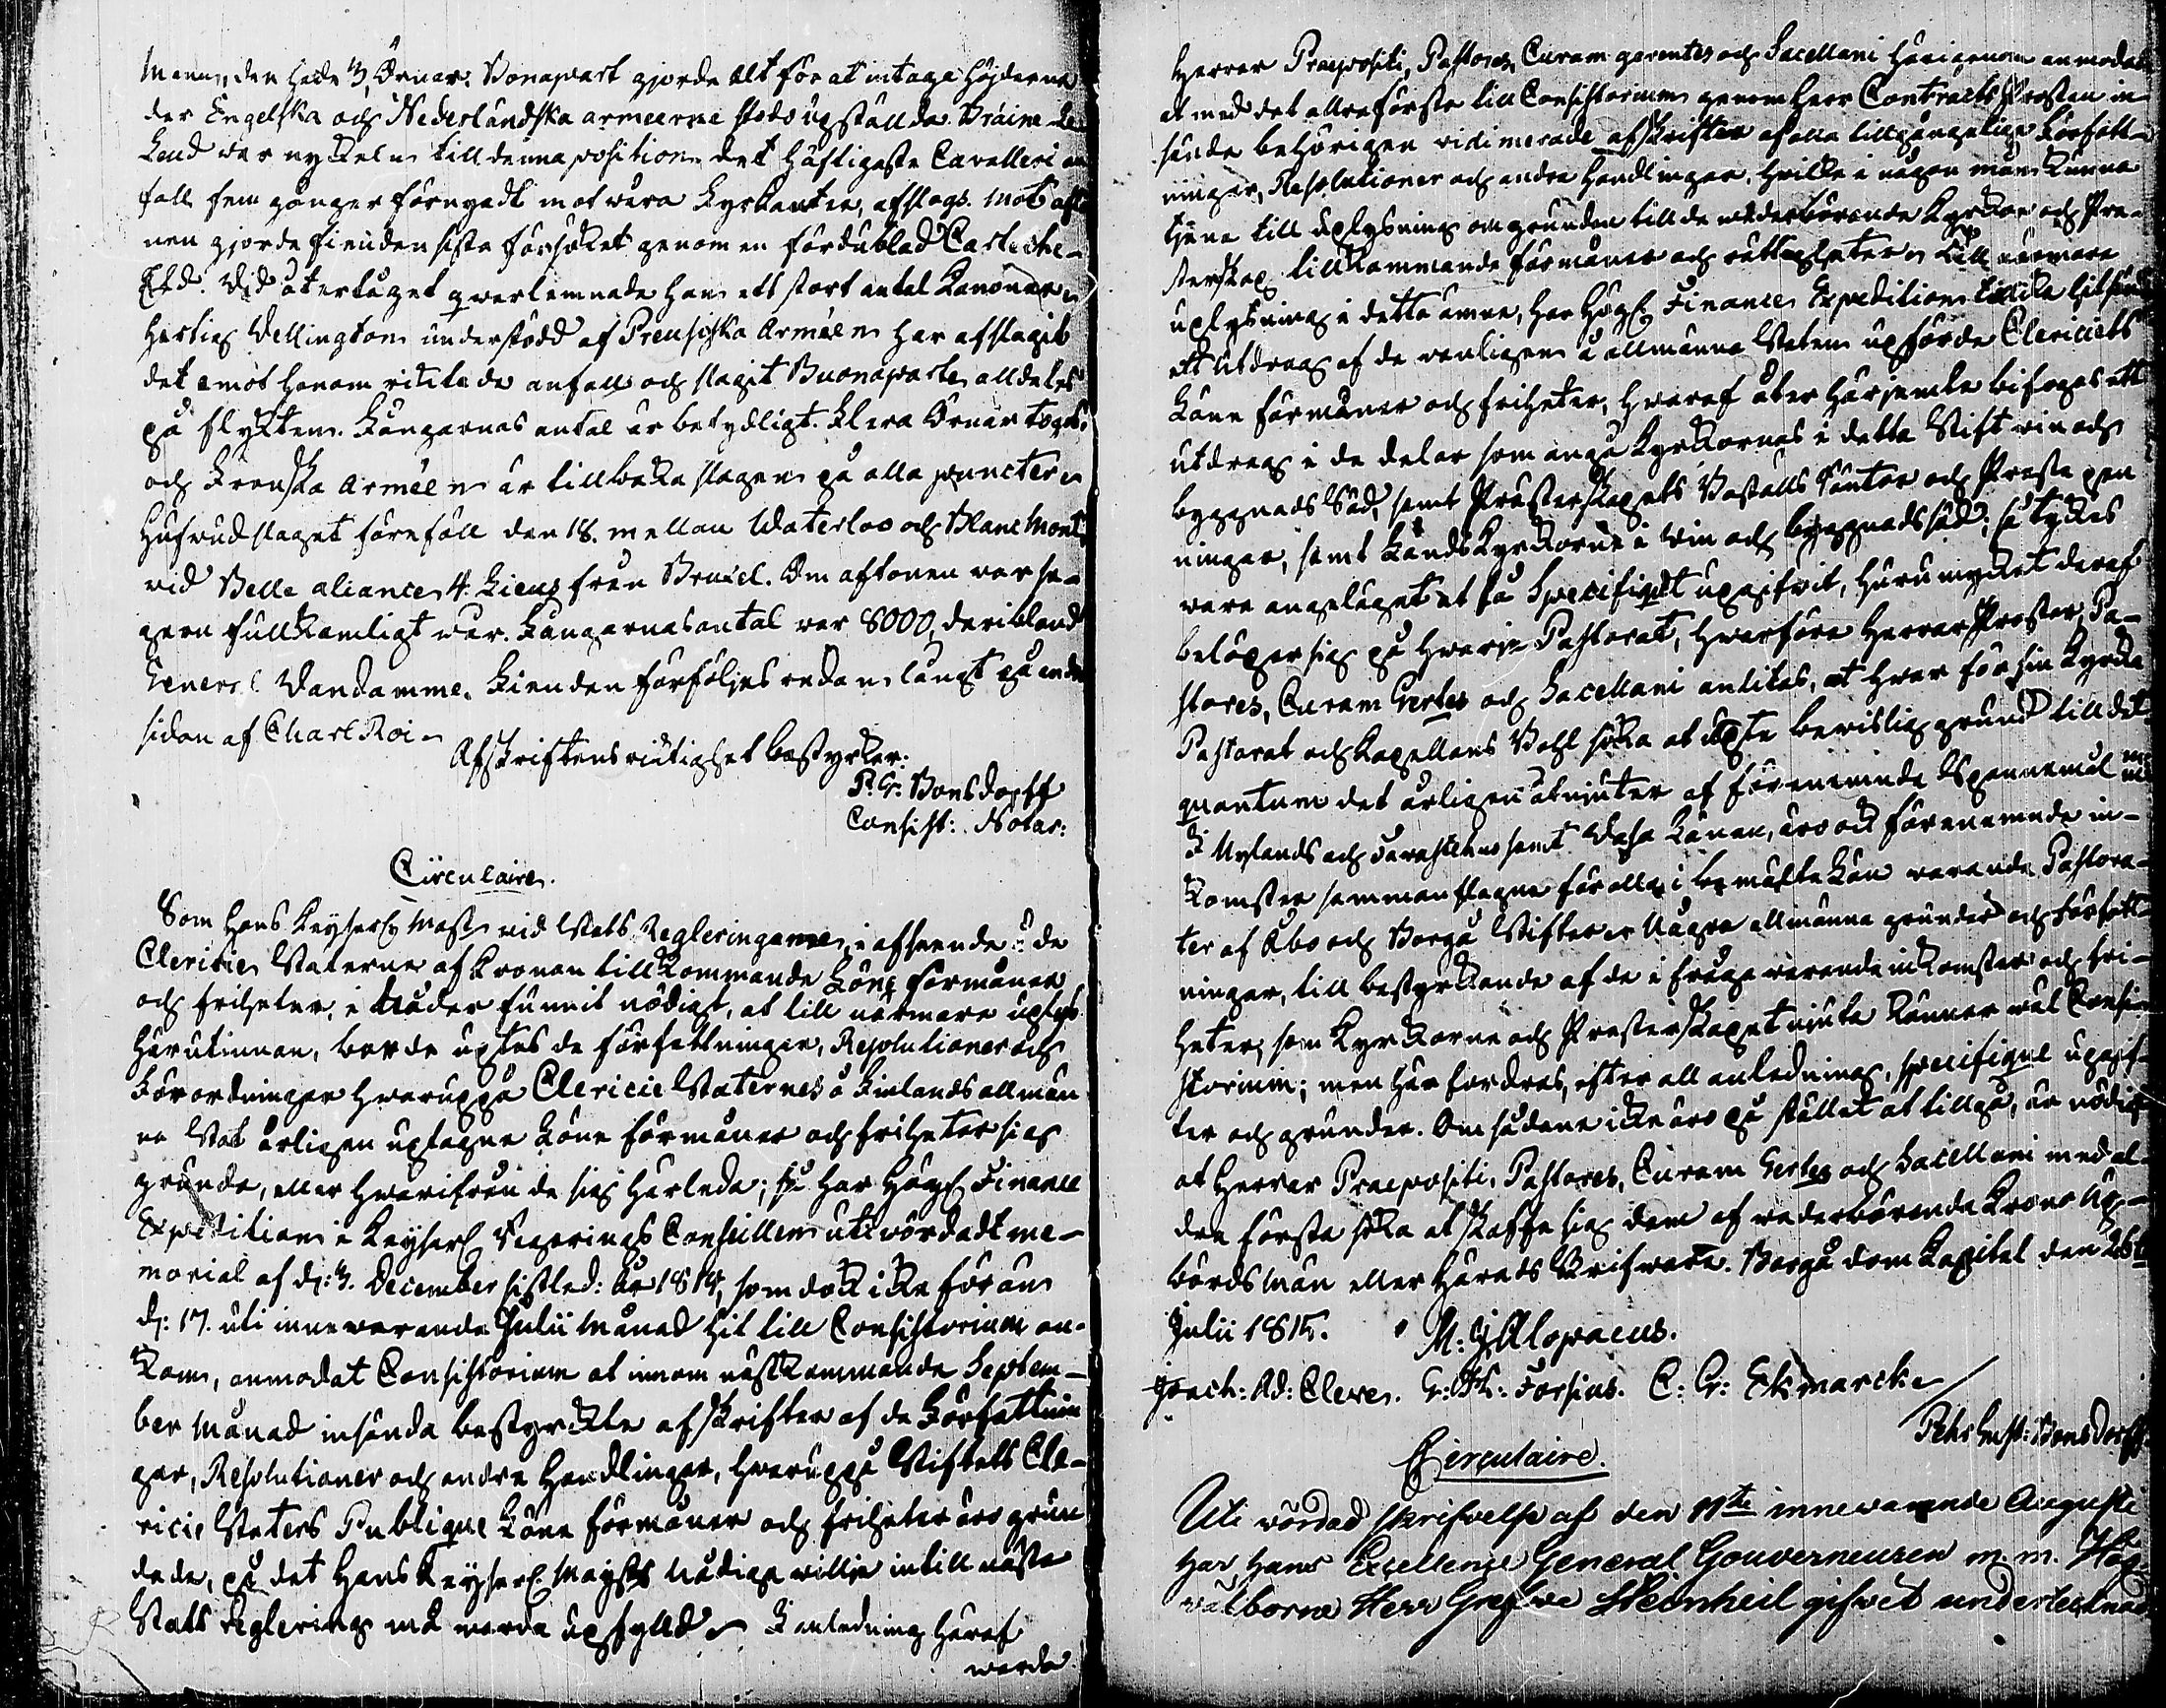 Mann, den hade 3 Örnar. Bonapart gjorde Alt för at intaga höjderna
der Engelska och Nederländska armeerne stodo upstälda. Braine Le
Leud war nyckeln till denna position. det häftigaste Cavalleri an
fall fem gånger förnyadt mot wåra Fyrkanter, afslogs. mot afto
nen gjorde Fienden sista försöket genom en fördublad Carteche-
Eld. Vid återtåget qwarlemnade han ett stort antal Kanoner.
Hertig Wellington understödd af Preusiska Arméen har afslagit
det emot honom riktade anfall och slagit Buonaparte alldeles
på flykten. Fångarnas antal är betydligt. Flera Örnar togos,
och Franska Arméen är tillbaka slagen på alla puncter
Hufwudslaget förefoll den 18. mellan Waterloo och Plane Mont
vid Belle aliance 4. Lieus från Bruxel. Om aftonen war se-
gern fullkomligt wår. Fångarnas antal war 8000, deribland
General Vandamme. Fienden förföljes redan långt på andra
sidan af Charl Roi.
Afskriftens riktighet bestyrker:
P. G: Bonsdorff
Consist: Notar:
Circulaire.
Som Hans Keyserl Majst vid Stats Regleringarne, i afseende å de
Clericie Staterne af Kronan tillkommande Löne förmåner
och friheter, i Nåder funnit nödigt, at till närmare uplys
härutinnan, borde uptes de författningar, Resolutioner och
Förordningar hwaruppå Clericie Staternes å Finlands allmän
na Stat årligen uptagne Löne förmåner och friheter sig
grunda, eller hwarifrån de sig härleda; så har Högl Finance
Expedition i Keyserl Regerings Conseillen uti wördadt me-
morial af d: 3. December sistled: år 1814, som dock icke förän
d: 17. uti innewarande Julii Månad hit till Consistorium an-
kom, anmodat Consistorium at innom nästkommande Septem-
ber Månad insända bestyrckte afskrifter af de Författnin
gar, Resolutioner och andra Handlingar, hwaruppå Stiftets Cle-
ricie Staters Publique Löne förmåner och friheter äro grun
dade, på det Hans Keyserl Mayts Nådiga willje intill nästa
Stats Reglering må warda upfylld. I anledning häraf
warda
Herrar Praepositi, Pastores, Curam gerentes och Sacellani härigenom anmodade
at med det allraförsta till Consistorium genom herr Contracts Prosten in
sända behörigen vidimerade afskrifter af alla tillgängelige Författ-
ningar, Resolutioner och andra Handlingar, hwilka i någon mån kunna
tjena till uplysning om grunden till de wederbörande Kyrkor och Pre-
sterskap tillkommande förmåner och rättigheter. Till närmare
uplysning i detta ämne, har Högl Finance Expedition tillika hitsänd
ett utdrag af de wanligen å allmänna Staten upförde Clericiets
Löne förmåner och friheter, hwaraf åter härjemte bifogas ett
utdrag i de delar som angå Kyrkornas i detta Stift win och
byggnads Säd, samt Prästerskapets Boställs Räntor och Prosta pen
ningar, samt Landskyrkorne i Win och byggnadssäd; så tyckes
wara angeläget at få Specifiqt upgifwit, huru mycket deraf
belöper sig på hwarje Pastorat, hwarföre Herrar Prostar, Pa-
stores, Curam Gertes och Sacellani anlitas, at hwar för sin Kyrka
Pastorat och Kapellans Bohl söka at upte bewislig grund till det
quantum det årligen åtnjuter af förenemnde Spannemål m m
I Nylands och Tavastehus samt Wasa Länen, äro ock förenemnde in-
komster sammanslagne för alla, i bemälte Län warande Pastora-
ter af Åbo och Borgå Stifter. Några allmänna grunder och författ-
ningar, till bestyrckande af de i fråga warande inkomster och fri-
heter, som Kyrkorne och Presterskapet njuta känner wäl Consi-
storium; men här fordras, efter all anledning, specifique upgif-
ter och grunder. Om sådane icke äro på stället at tillgå, är nödigt
at Herrar Praepositi, Pastores, Curam Gertes och Sacellani med al-
dra första söka at skaffa sig dem af wederbörande Krono Up-
bördsmän eller Härads Skrifware. Borgå Dom Kapitel den 26te
Julii 1815. M: J Alopaeus.
Joach: Ad: Cleve. G: Fr: Forsius. C: G: Ekmarck.
Pehr Gust: Bonsdorff
Circulaire.
Uti wördad skrifvelse af den 11te innewarande Augusti
Har, Hans Excellence General Gouverneuren m. m. Hög-
välborne Herr Grefwe Steinheil gifwet undertecknad